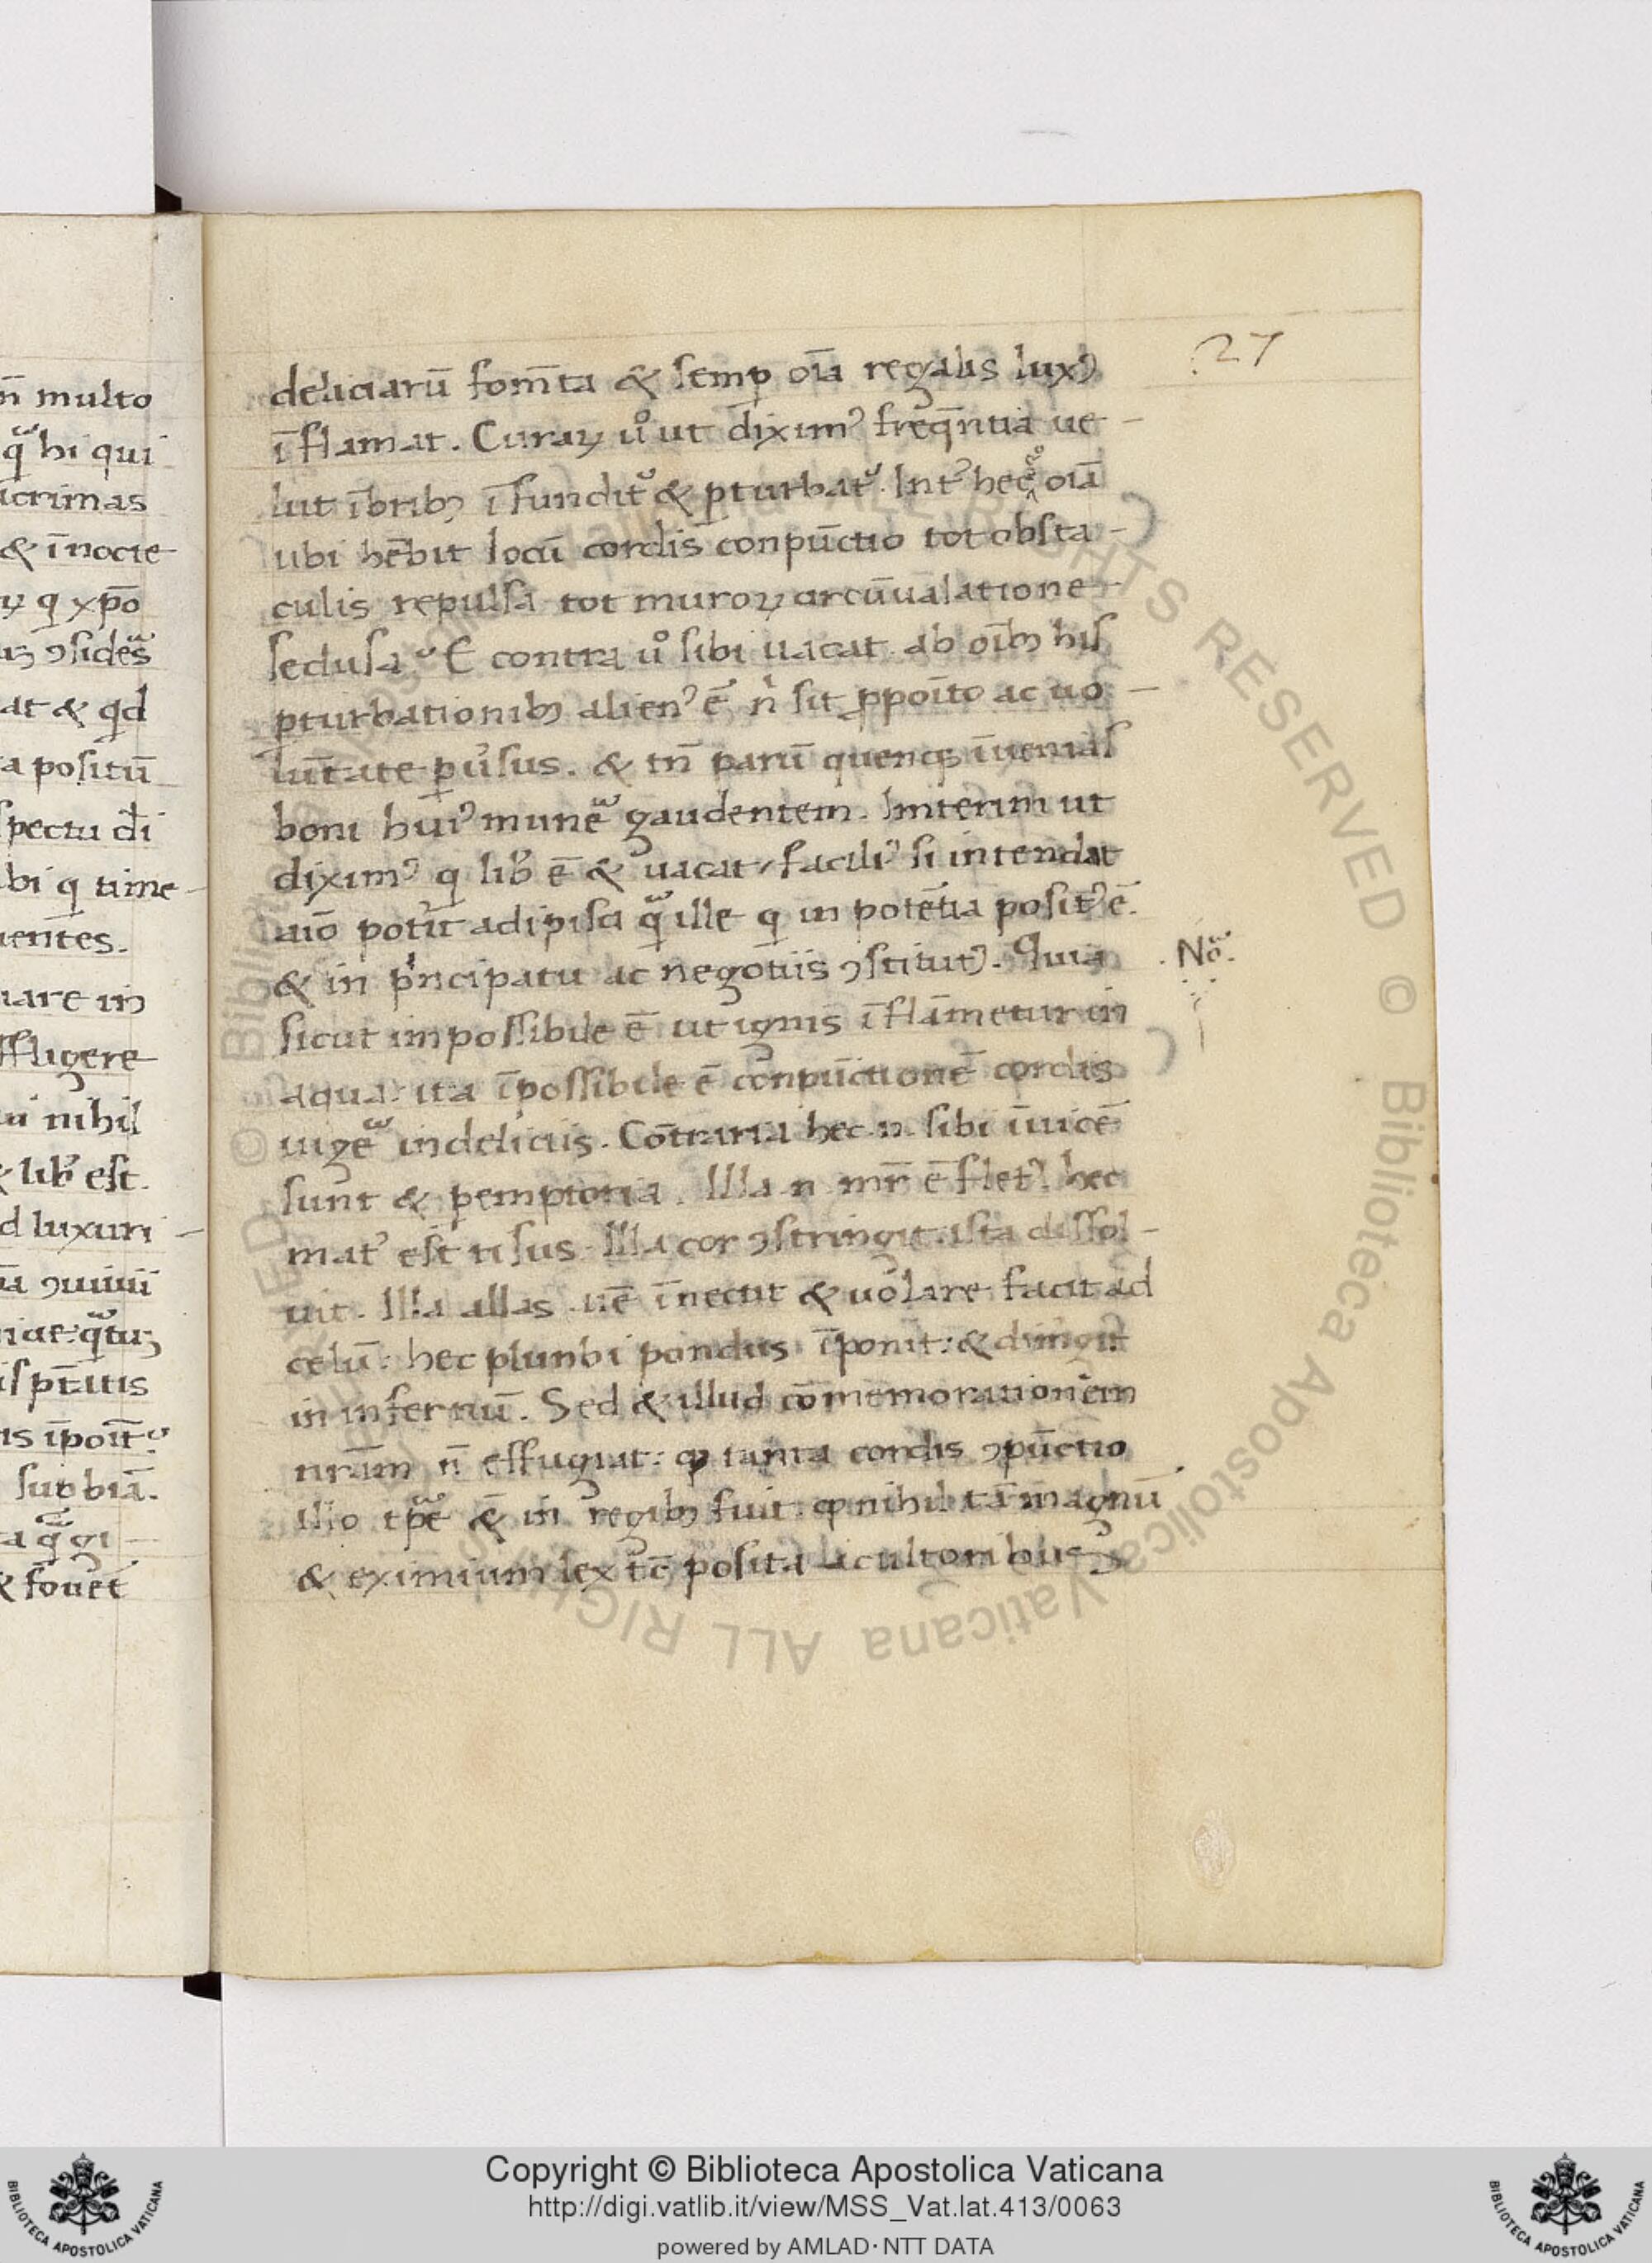 n̄ multo
qᷓ hi qui
acrimas
& īnocte
ꝝ q xp̄o
ꝯsideᷓs
at & qd
a positū
spectu di
bi q time
uentes.
uare in
ffligere
ui nihil
& lib̾ est.
d luxuri
ā ꝯuiui
qᷓtuꝫ
is īpoit̄ᷓ
sup̱biā.
a qᷓ gi
& fouet
27
deliciarū fom̄ta & semꝑ oīa regalis luxꝰ
īflamat. Curaꝝ u̾o ut diximꝰ freqn̄tia ue-
lut ībribꝫ īfundit᷑ & ꝑturbat᷑. Int̾ hec oīa
ubi hēbit locū cordis conpūctio tot obsta-
culis repulsa tot muroꝝ circūualatione
seclusa E contra u̾o sibi uacat ab oībꝫ his
ꝑturbationibꝫ alienꝰ ē nͥ sit ꝓpoīto ac uo-
lūtate ꝑu̾sus. & tn̄ parū quenqꝫ īuenias
boni huiꝰ muneᷓ gaudentem. Interim ut
diximꝰ q lib̾ ē & uacat / faciliꝰ si intendat
aīo potīt adipisci qᷓ ille q in potētia positꝰ ē.
& in pͥncipatu ac negotiis ꝯstitutꝰ. Quia
Noᷓ.
sicut impossibile ē ut ignis īflāmetur in
aqua: ita īpossibile ē conpūctionē cordis
uigeᷓ in deliciis. Cōtraria hec .n. sibi īuicē
sunt & pemptoria. Illa .n. mr̄ ē fletꝰ. hec
mat̾ est risus. Illa cor ꝯstringit. ista dissol-
uit. Illa allas īnectit & uolare facit ad
celū: hec plunbi pondus īponit: & dimgit
in infernū. Sed & illud cōmemorationem
nr̄am n̄ effugiat: ꝙ tanta cordis ꝯpūctio
illo tꝑe ē in regibꝫ fuit. ꝙ nihil tā magnū
& eximium lex tc̄ posita a cultoribus
Copyright © Biblioteca Apostolica Vaticana
http://digi.vatlib.it/view/MSS_Vat.lat.413/0063
powered by AMLAD·NTT DATA
BIBLIOTECA APOSTOLICA VATICANA
BIBLIOTECA APOSTOLICA VATICANA